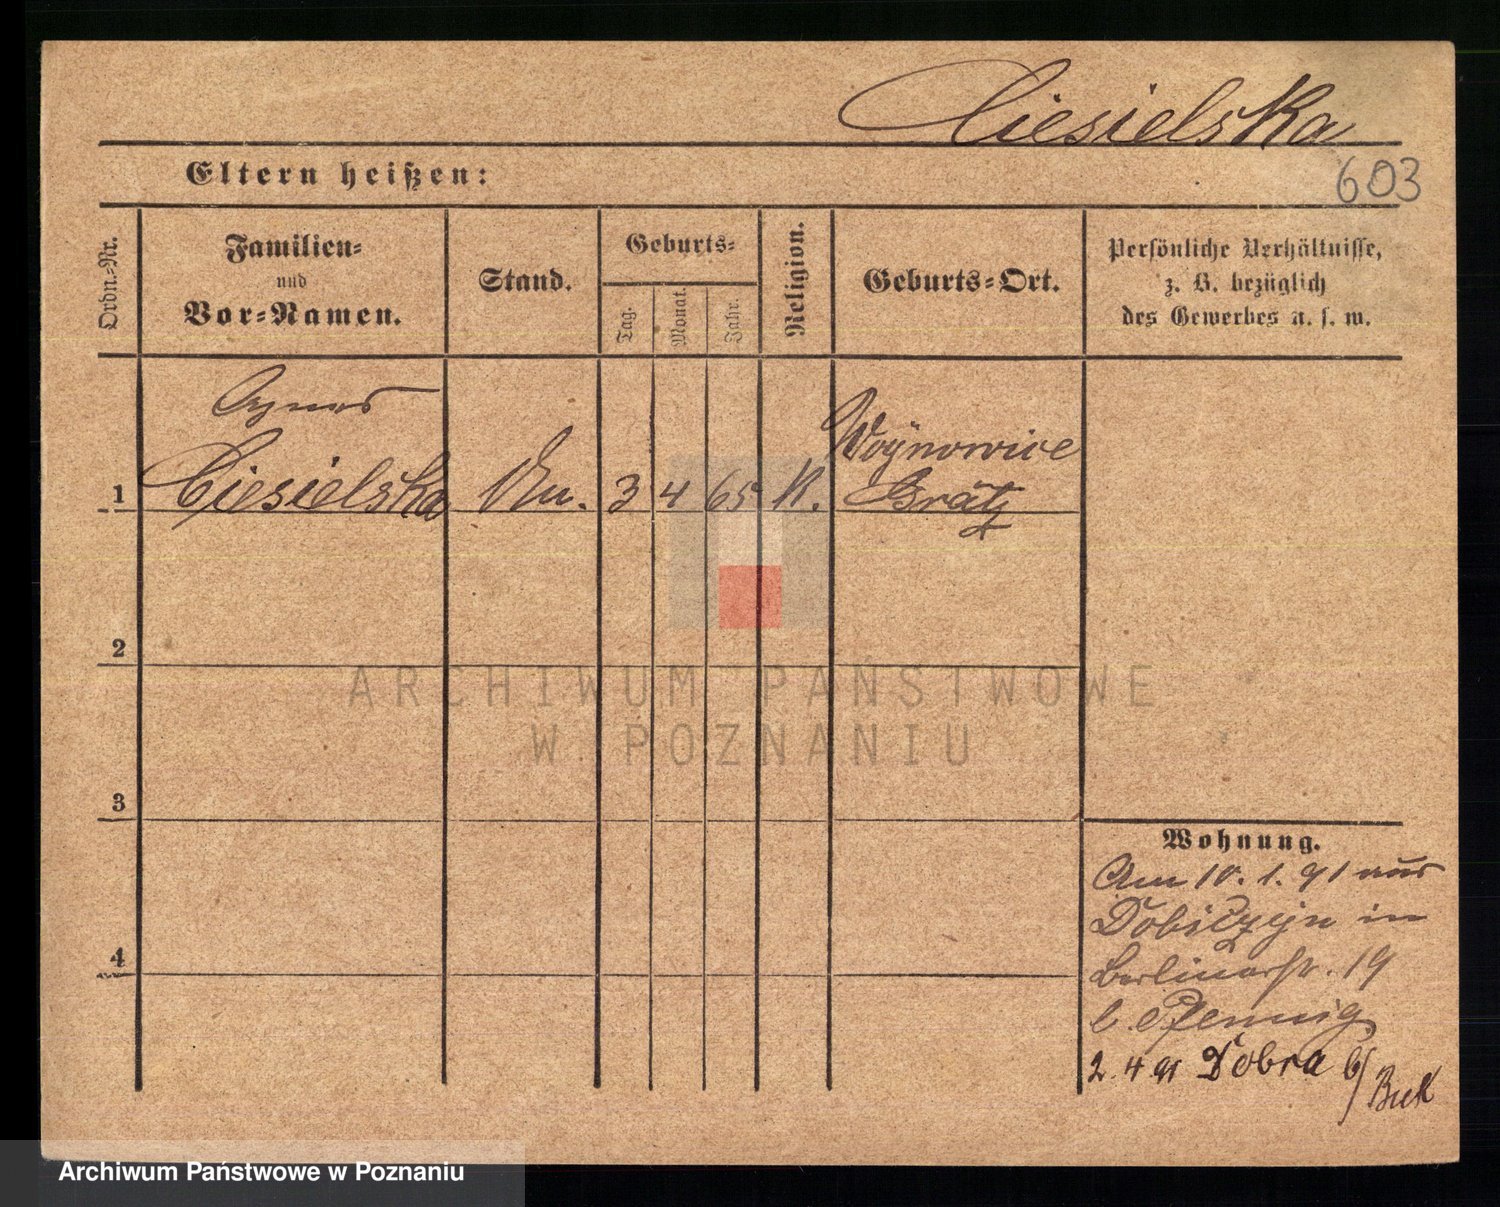 Ciesielska
603
Eltern heißen:
Ordn.-Nr.
Familien-
und
Vor-Namen.
Stand.
Geburts-
Tag.
Monat.
Jahr.
Religion.
Geburts-Ort.
Persönliche Verhältnisse,
z. B. bezüglich
des Gewerbes u. s. w.
Agnes
Woynowice
1 Ciesielska 3 4 65 K. Grätz
2
3
4
ARCHIWUM PAŃSTWOWE
W POZNANIU
Wohnung.
Am 10. 1. 91 aus
in
Berlinerstr. 19
b. Pfennig
2. 4 91 Dobra b/
Buk
Archiwum Państwowe w Poznaniu